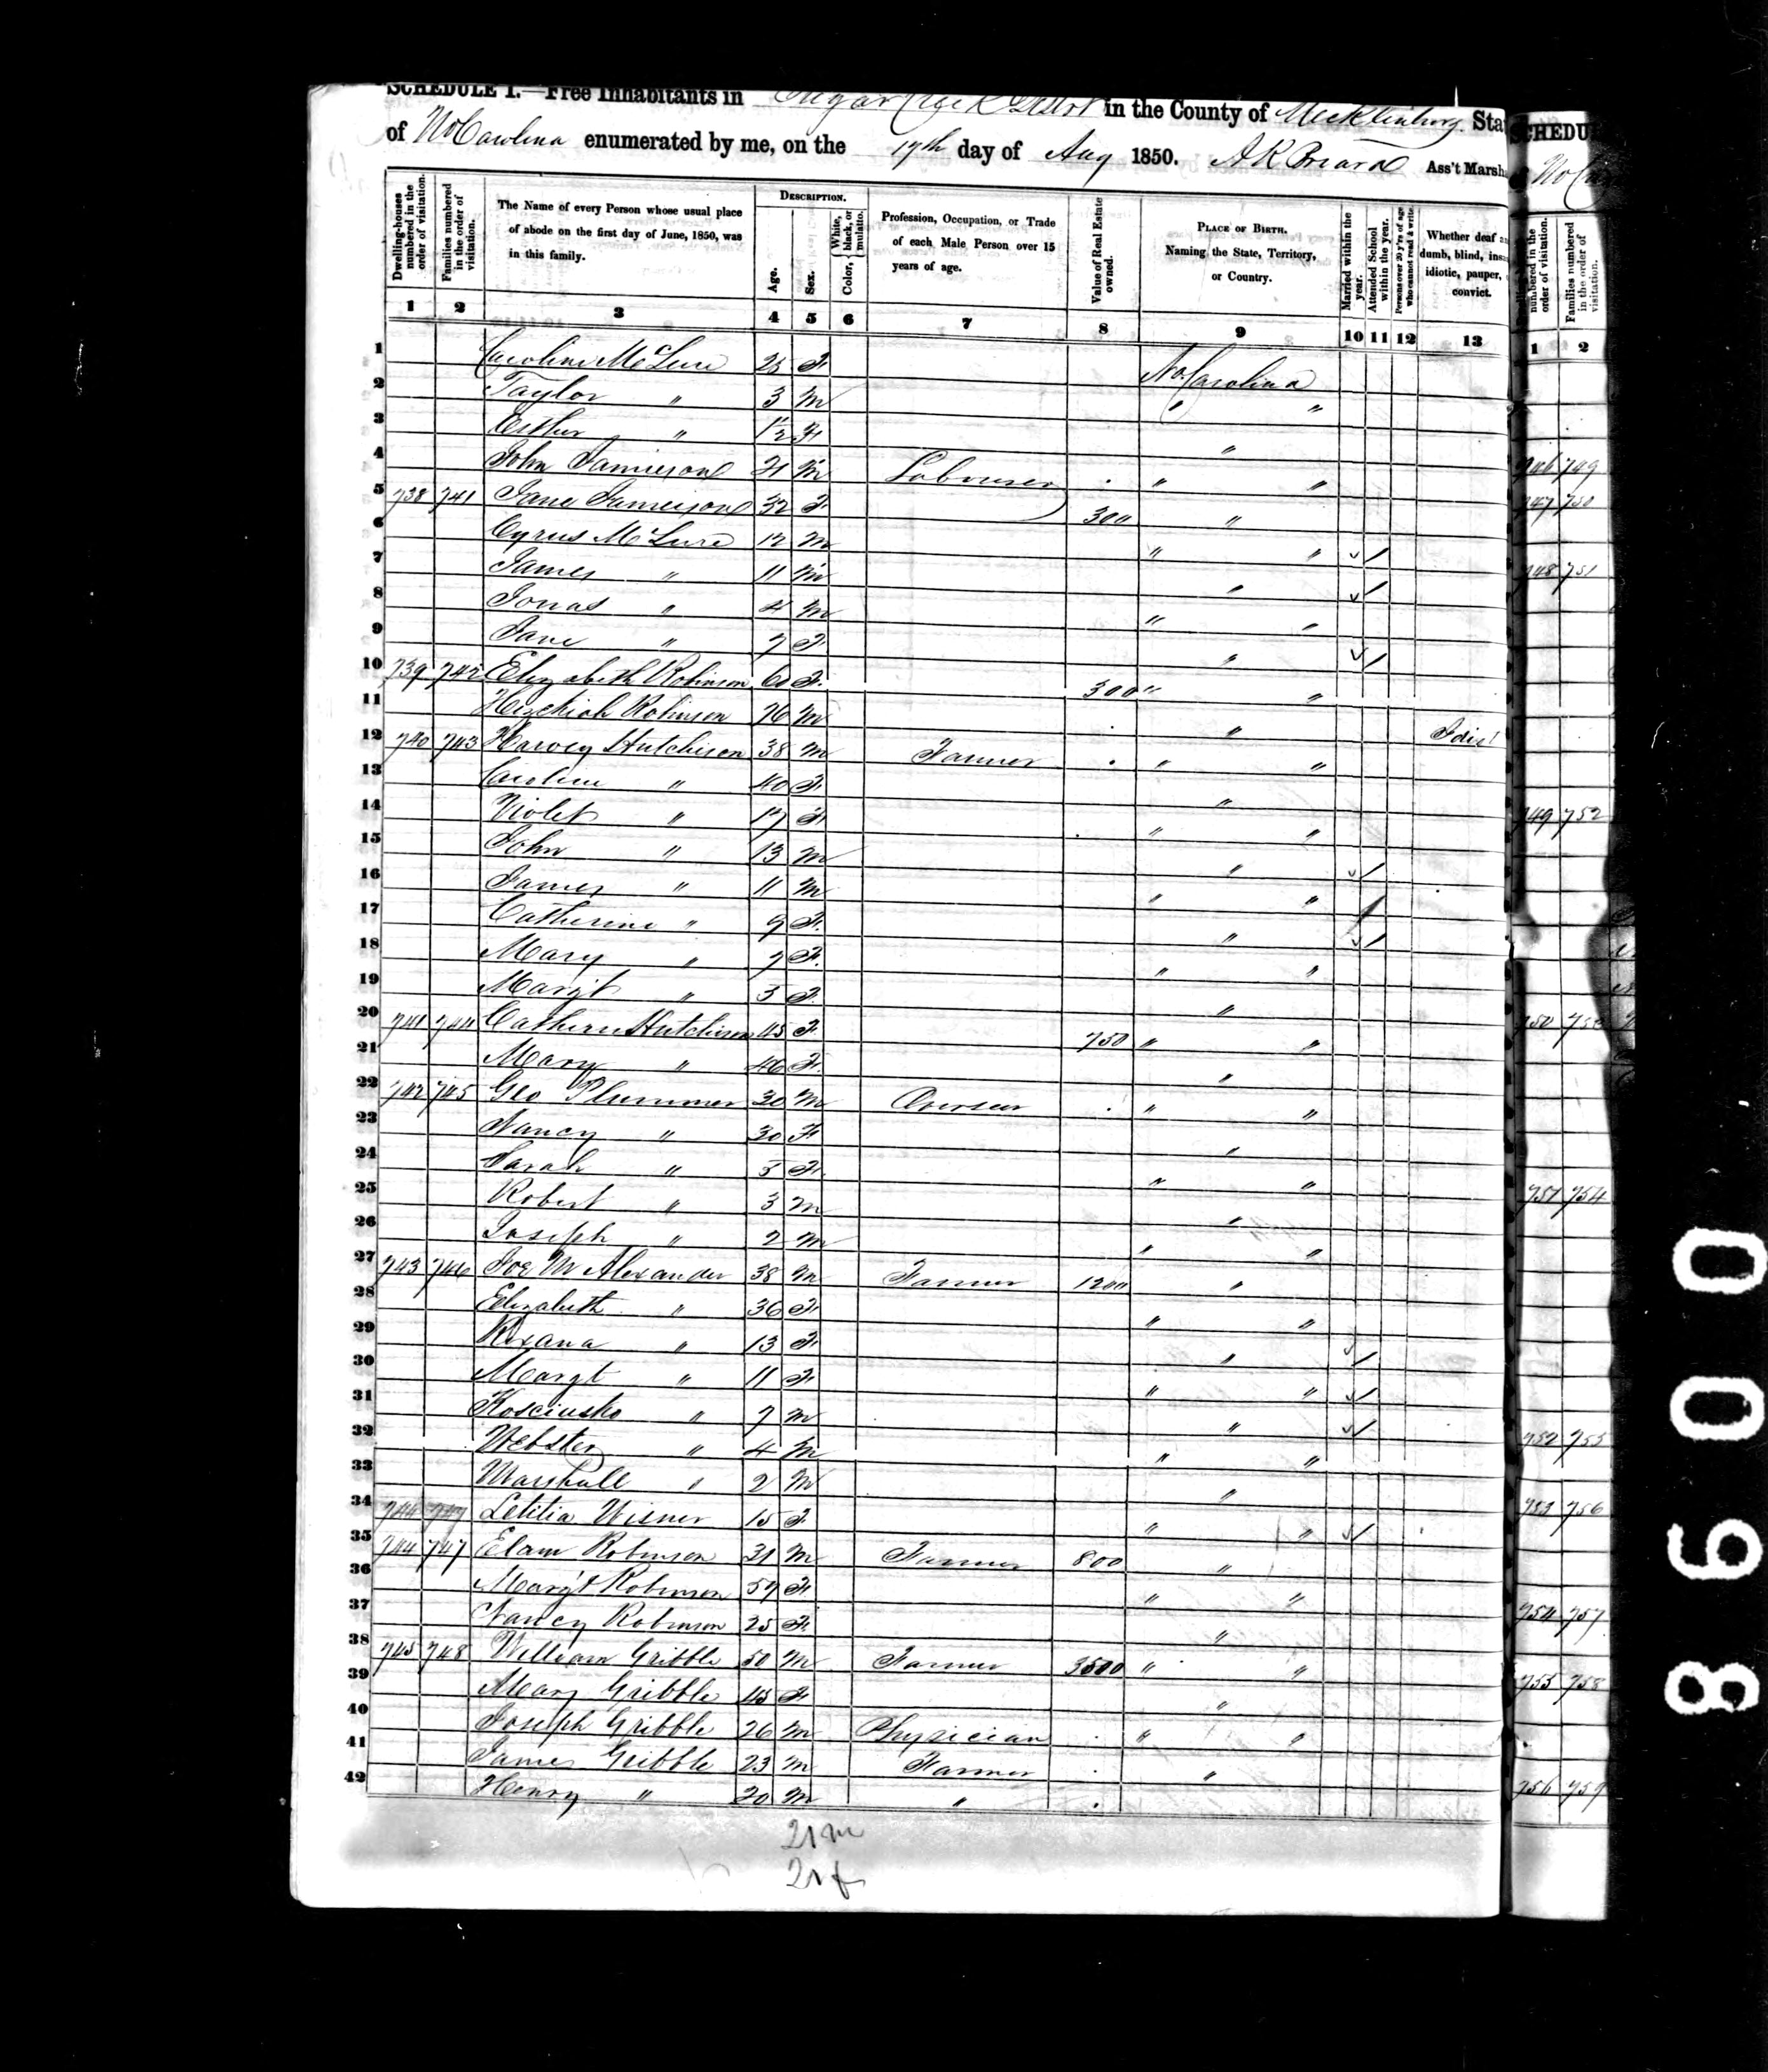 SCHEDULE I.—Free Inhabitants in Sugar Creek District in the County of Mecklenburg Sta
of No Carolina enumerated by me, on the 17th day of Aug 1850. Ass't Marsh
Dwelling-houses numbered in the order of visitation.
Families numbered in the order of visitation.
The Name of every Person whose usual place of abode on the first day of June, 1850, was in this family.
DESCRIPTION.
Age.
Sex.
Color, White, black, or mulatto.
Profession, Occupation, or Trade of each Male Person over 15 years of age.
Value of Real Estate owned.
PLACE OF BIRTH. Naming the State, Territory, or Country.
Married within the year.
Attended School within the year.
Persons over 20 y'rs of age who cannot read & write.
Whether deaf and dumb, blind, insane, idiotic, pauper, convict.
1 2 3 4 5 6 7 8 9 10 11 12 13
1 Caroline McLure 25 F No Carolina
2 Taylor " 3 M " "
3 Esther " 1/2 F "
4 John Jamieson 21 M Labourer . " "
5 738 741 Jane Jameison 32 F 300 "
6 Cyrus McLure 12 M " "
7 James " 11 M "
8 Jonas " 4 M " "
9 Jane " 7 F "
10 739 742 Elizabeth Robinson 60 F 300 " "
11 Hezekiah Robinson 26 M . "
12 740 743 Harvey Hutchison 38 M Farmer . " "
13 Caroline " 40 F "
14 Violet " 17 F . " "
15 John " 13 M "
16 James " 11 M " "
17 Catherine " 9 F "
18 Mary " 7 F " "
19 Marg't " 5 F "
20 741 744 Catherine Hutchison 45 F 750 " "
21 Mary " 46 F "
22 742 745 Geo Plummer 30 M Overseer . " "
23 Nancy " 30 F "
24 Sarah " 5 F " "
25 Robert " 3 M "
26 Joseph " 2 M " "
27 743 746 M Alexander 38 M Farmer 1200 "
28 Elizabeth " 36 F " "
29 Roxana " 13 F "
30 Margt " 11 F " "
31 Kosciusko " 7 M "
32 Webster " 4 M " "
33 Marshall " 2 M "
34 744 747 Letitia Wisner 15 F " "
35 744 747 Elam Robinson 31 M Farmer 800 "
36 Marg't Robinson 59 F " "
37 Nancy Robinson 25 F "
38 745 748 William Gribble 50 M Farmer 3500 " "
39 Mary Gribble 45 F "
40 Joseph Gribble 26 M Physician . " "
41 James Gribble 23 M Farmer . "
42 Henry " 20 M " .
21 m
21 f
SCHEDU
No Ca
numbered in the order of visitation.
Families numbered in the order of visitation.
1 2
746 749
747 750
748 751
749 752
750 753
751 754
752 755
753 756
754 757
755 758
756 759
8600